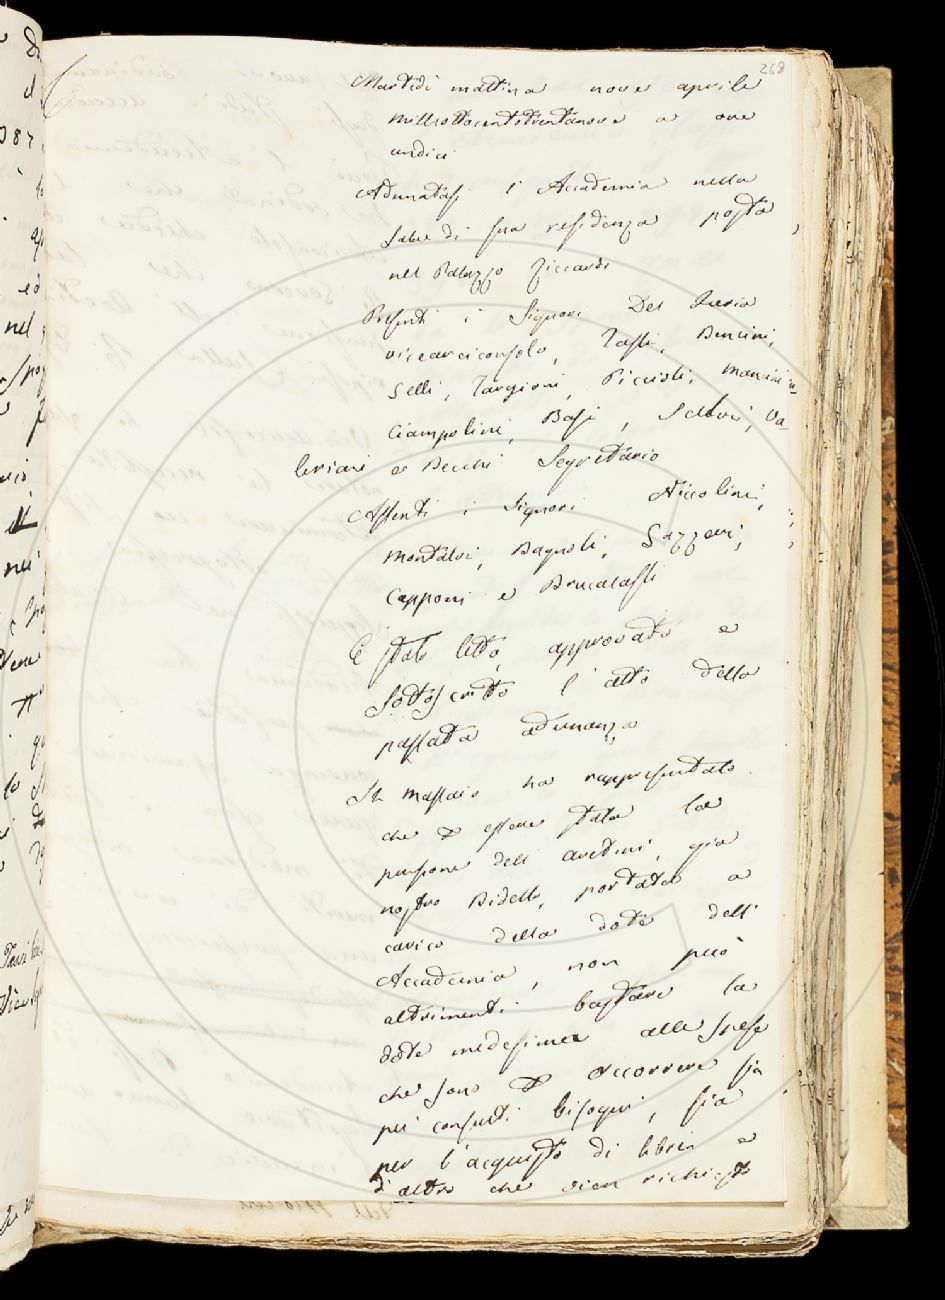 268
Martedì mattina nove aprile
milleottocentotrentanove a ore
undici
Adunatasi l'Accademia nella
Sala di sua residenza posta
nel Palazzo Riccardi
Presenti i Signori Del Furia
vicearciconsolo, Tassi, Bencini,
Gelli, Targioni, Piccioli, Mancini
Ciampolini, Basi, Va-
leriani e Becchi Segretario
Assenti i Signori Niccolini,
Montalvi, Bagnoli, Gazzeri,
Capponi e Brucalassi
È stato letto, approvato e
Sottoscritto l'atto della
passata adunanza
Il Massaio ha rappresentato
che essere stata la
pensione dell' già
nostro Bidello, portata a
carico della dote dell'
Accademia, non può
altrimenti bastare la
dote medesima alle spese
che sono occorrere sia
per consueti bisogni, sia
per l'acquisto di libri e
d'altro che vien richiesto